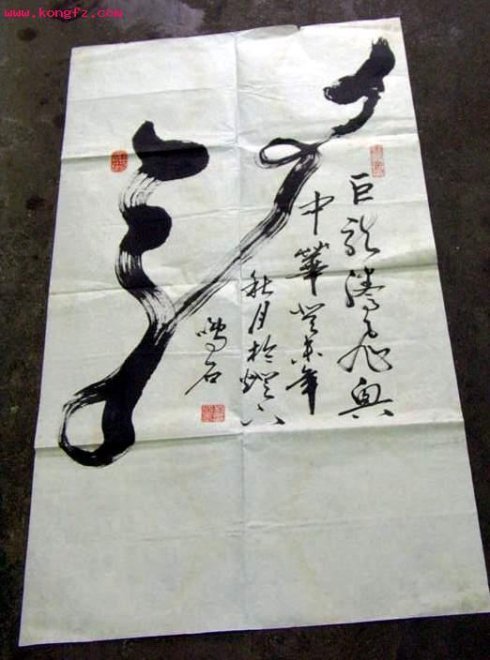 www.kongfz.com
巨龍騰飛興
中華癸未年
秋月於燈下
石